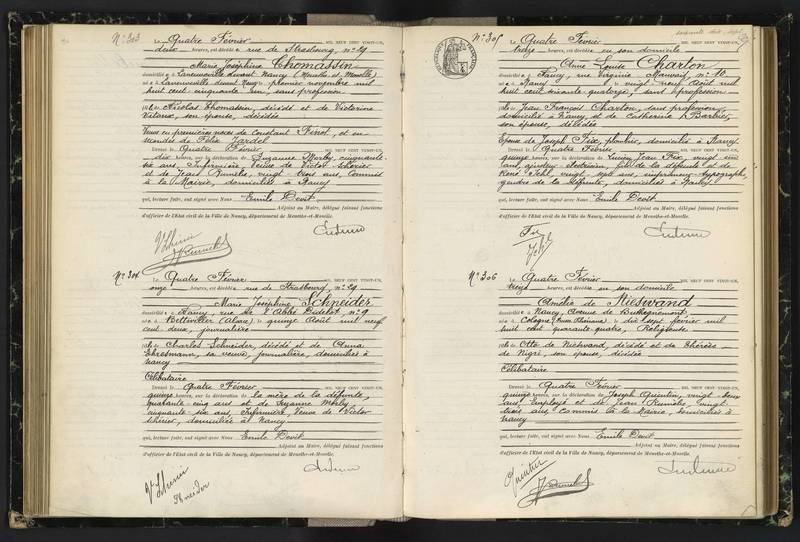 N° 303
Le Quatre Février mil neuf cent vingt-un,
deux heures, est décédée rue de Strasbourg, n° 29
Marie Joséphine Thomassin
domiciliée à Laneuveville devant Nancy (Meurthe et Moselle)
née à Laneuveville devant Nancy premier novembre mil
huit cent cinquante un, sans profession
fille de Nicolas Thomassin, décédé et de Victorine
son épouse, décédée
Veuve en premières noces de Constant Finot, et en
secondes de Félix Jardel
Dressé le Quatre Février mil neuf cent vingt-un,
dix heures, sur la déclaration de Suzanne Morly, cinquante
six ans, Infirmière, Veuve de Victor Thérier
et de Jean Rumelié, vingt trois ans, Commis
à la Mairie, domiciliés à Nancy
qui, lecture faite, ont signé avec Nous Emile Devit
Adjoint au Maire, délégué faisant fonctions
d'officier de l'Etat civil de la Ville de Nancy, département de Meurthe-et-Moselle.
N° 304
Le Quatre Février mil neuf cent vingt-un,
onze heures, est décédée rue de Strasbourg, n° 29
Marie Joséphine Schneider
domiciliée à Nancy, rue de l'Abbé Didelot n° 9
née à Bettwiller (Alsace) quinze Août mil neuf
cent deux, journalière
fille de Charles Schneider, décédé et de Anna
sa veuve, journalière, domiciliée à
Nancy
Célibataire
Dressé le Quatre Février mil neuf cent vingt-un,
quinze heures, sur la déclaration de la mère de la défunte,
quarante cinq ans et de Suzanne Morly,
cinquante six ans, Infirmière, Veuve de Victor
Thérier, domiciliée à Nancy
qui, lecture faite, ont signé avec Nous Emile Devit
Adjoint au Maire, délégué faisant fonctions
d'officier de l'Etat civil de la Ville de Nancy, département de Meurthe-et-Moselle.
Schneider
N° 305
Le Quatre Février mil neuf cent vingt-un,
treize heures, est décédée en son domicile
Anne Louise Charton
domiciliée à Nancy, rue Virginie Mauvais, n° 10
née à Nancy le vingt neuf Août mil
huit cent soixante quatorze, sans profession
fille de Jean François Charton, sans profession,
domicilié à Nancy et de Catherine Barbier,
son épouse, décédée
Epouse de Joseph Fix, plombier, domicilié à Nancy
Dressé le Quatre Février mil neuf cent vingt-un,
quinze heures, sur la déclaration de Lucien Jean Fix, vingt un
ans, ajusteur électricien, fils de la défunte et de
René Jehl, vingt sept ans, imprimeur-typographe,
gendre de la défunte, domiciliés à Nancy
qui, lecture faite, ont signé avec Nous Emile Devit
Adjoint au Maire, délégué faisant fonctions
d'officier de l'Etat civil de la Ville de Nancy, département de Meurthe-et-Moselle.
Fix
Jehl
N° 306
Le Quatre Février mil neuf cent vingt-un,
treize heures, est décédée en son domicile
Amélie de Nieswand
domiciliée à Nancy, Avenue de Buthegnémont,
née à Cologne (Prusse Rhénane) le dix sept février mil
huit cent quarante quatre, Religieuse
fille de Otto de Nieswand, décédé et de Thérèse
de Nigri, son épouse, décédée
Célibataire
Dressé le Quatre Février mil neuf cent vingt-un,
quinze heures, sur la déclaration de Joseph Quentin, vingt deux
ans, Employé et de Jean Rumelié, vingt
trois ans, Commis à la Mairie, domiciliés à
Nancy
qui, lecture faite, ont signé avec Nous Emile Devit
Adjoint au Maire, délégué faisant fonctions
d'officier de l'Etat civil de la Ville de Nancy, département de Meurthe-et-Moselle.
Quentin